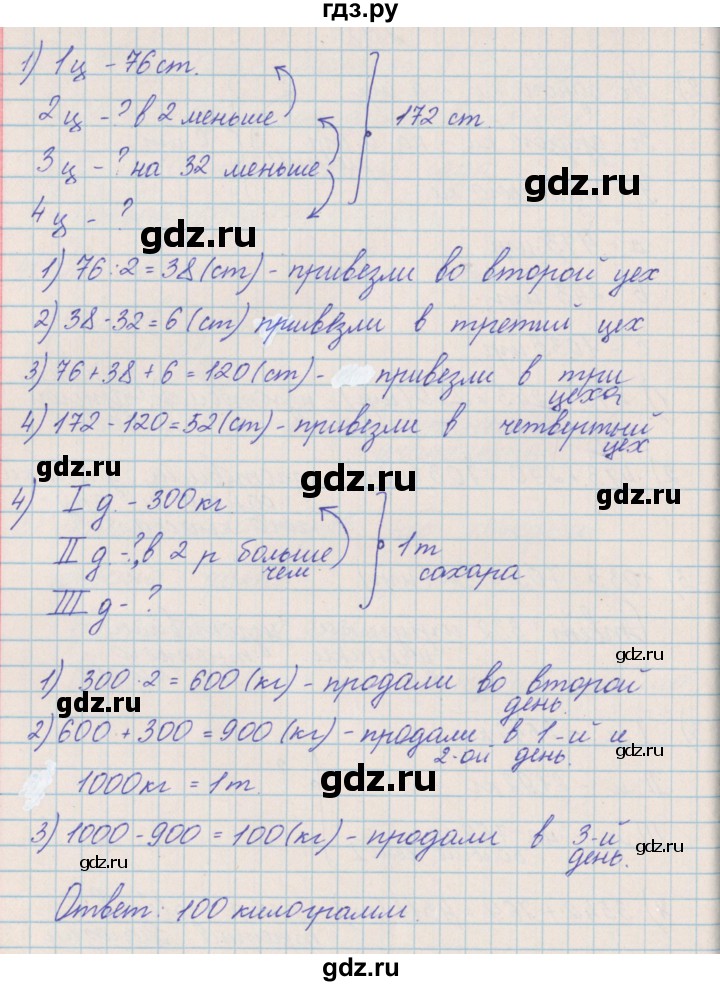 гдз.ру
1) 1ц - 76 ст.
2ц - ? в 2 меньше
172 ст.
3ц - ? на 32 меньше
gdz.ru
4ц - ?
gdz.ru
1) 76:2=38(ст) - привезли во второй цех
2) 38-32=6(ст) привезли в третий цех
3) 76+38+6=120(ст) - привезли в три
цеха
4) 172-120=52(ст) - привезли в четвертый
цех
gdz.ru
gdz.ru
gdz.ru
4) I д. - 300кг
II д. - ?, в 2 р больше
чем
1т
сахара
III д - ?
gdz.ru
1) 300·2=600(кг) - продали во второй
день.
gdz.ru
2) 600+300=900(кг) - продали в 1-й и
2-ой день.
gdz.ru
1000кг = 1т
gdz.ru
3) 1000-900=100(кг) - продали в 3-й
день.
gdz.ru
gdz.ru
Ответ: 100 килограмм.
gdz.ru